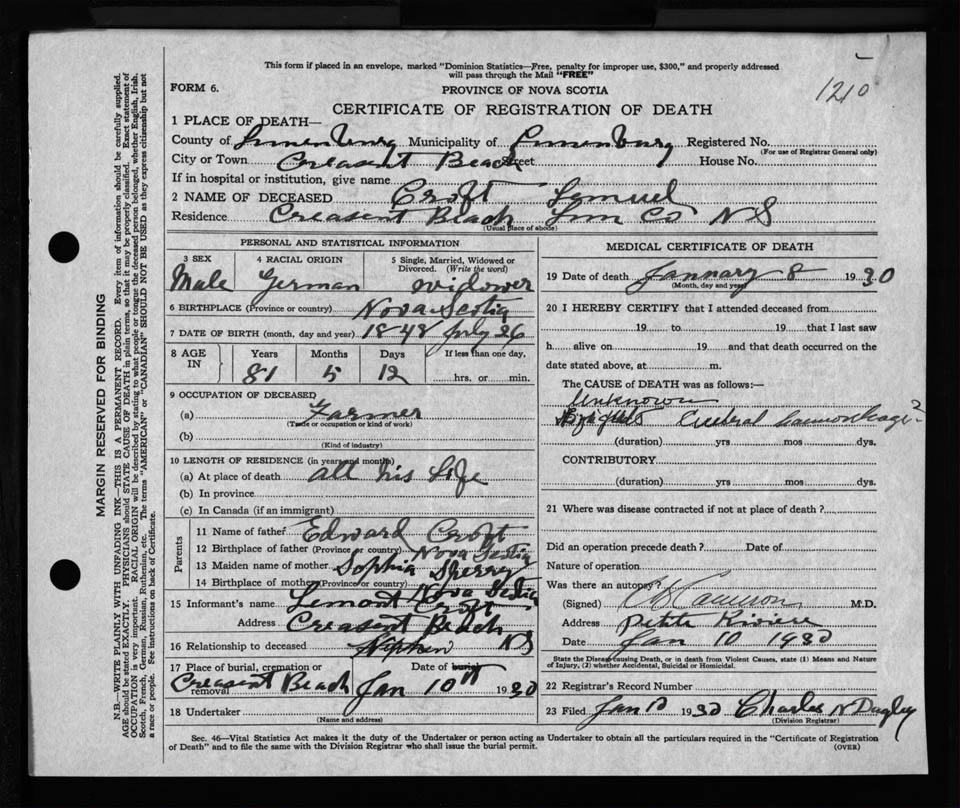 This form if placed in an envelope, marked "Dominion Statistics—Free, penalty for improper use, $300," and properly addressed
will pass through the Mail "FREE"
1210
FORM 6.
PROVINCE OF NOVA SCOTIA
CERTIFICATE OF REGISTRATION OF DEATH
1 PLACE OF DEATH—
County of Lunenburg Municipality of Lunenburg Registered No.
(For use of Registrar General only)
City or Town Creasent Beach Street House No.
If in hospital or institution, give name
2 NAME OF DECEASED Croft Lemuel
Residence Creasent Beach Lun Co N S
(Usual place of abode)
PERSONAL AND STATISTICAL INFORMATION
3 SEX 4 RACIAL ORIGIN 5 Single, Married, Widowed or Divorced. (Write the word)
Male German widower
6 BIRTHPLACE (Province or country) Nova Scotia
7 DATE OF BIRTH (month, day and year) 1848 July 26
8 AGE IN Years Months Days If less than one day,
81 5 12 hrs. or min.
9 OCCUPATION OF DECEASED
(a) Farmer
(Trade or occupation or kind of work)
(b)
(Kind of industry)
10 LENGTH OF RESIDENCE (in years and months)
(a) At place of death all his Life
(b) In province
(c) In Canada (if an immigrant)
Parents
11 Name of father Edward Croft
12 Birthplace of father (Province or country) Nova Scotia
13 Maiden name of mother Sophia Sperry
14 Birthplace of mother (Province or country) Nova Scotia
15 Informant's name Lemont Croft
Address Creasent Beach
16 Relationship to deceased Nephew N S
17 Place of burial, cremation or removal Date of burial
Creasent Beach Jan 10th 1930
18 Undertaker
(Name and address)
MEDICAL CERTIFICATE OF DEATH
19 Date of death January 8 1930
(Month, day and year)
20 I HEREBY CERTIFY that I attended deceased from
19 to 19 that I last saw
h alive on 19 and that death occurred on the
date stated above, at m.
The CAUSE of DEATH was as follows:—
Unknown
Cerebral haemorrhage?
(duration) yrs mos dys.
CONTRIBUTORY
(duration) yrs mos dys.
21 Where was disease contracted if not at place of death?
Did an operation precede death? Date of
Nature of operation
Was there an autopsy?
(Signed) M.D.
Address Petite Riviere
Date Jan 10 1930
State the Disease causing Death, or in death from Violent Causes, state (1) Means and Nature
of Injury, (2) whether Accidental, Suicidal or Homicidal.
22 Registrar's Record Number
23 Filed Jan 10 1930 Charles N
(Division Registrar)
Sec. 46—Vital Statistics Act makes it the duty of the Undertaker or person acting as Undertaker to obtain all the particulars required in the "Certificate of Registration
of Death" and to file the same with the Division Registrar who shall issue the burial permit.
(OVER)
MARGIN RESERVED FOR BINDING
N.B.—WRITE PLAINLY WITH UNFADING INK—THIS IS A PERMANENT RECORD. Every item of information should be carefully supplied.
AGE should be stated EXACTLY. PHYSICIANS should STATE CAUSE OF DEATH in plain terms, so that it may be properly classified. Exact statement of
OCCUPATION is very important. RACIAL ORIGIN will be described by stating to what people or tongue the deceased person belonged, whether English, Irish,
Scotch, French, German, Russian, Ruthenian, etc. The terms "AMERICAN" or "CANADIAN" SHOULD NOT BE USED as they express citizenship but not
a race or people. See instructions on back of Certificate.